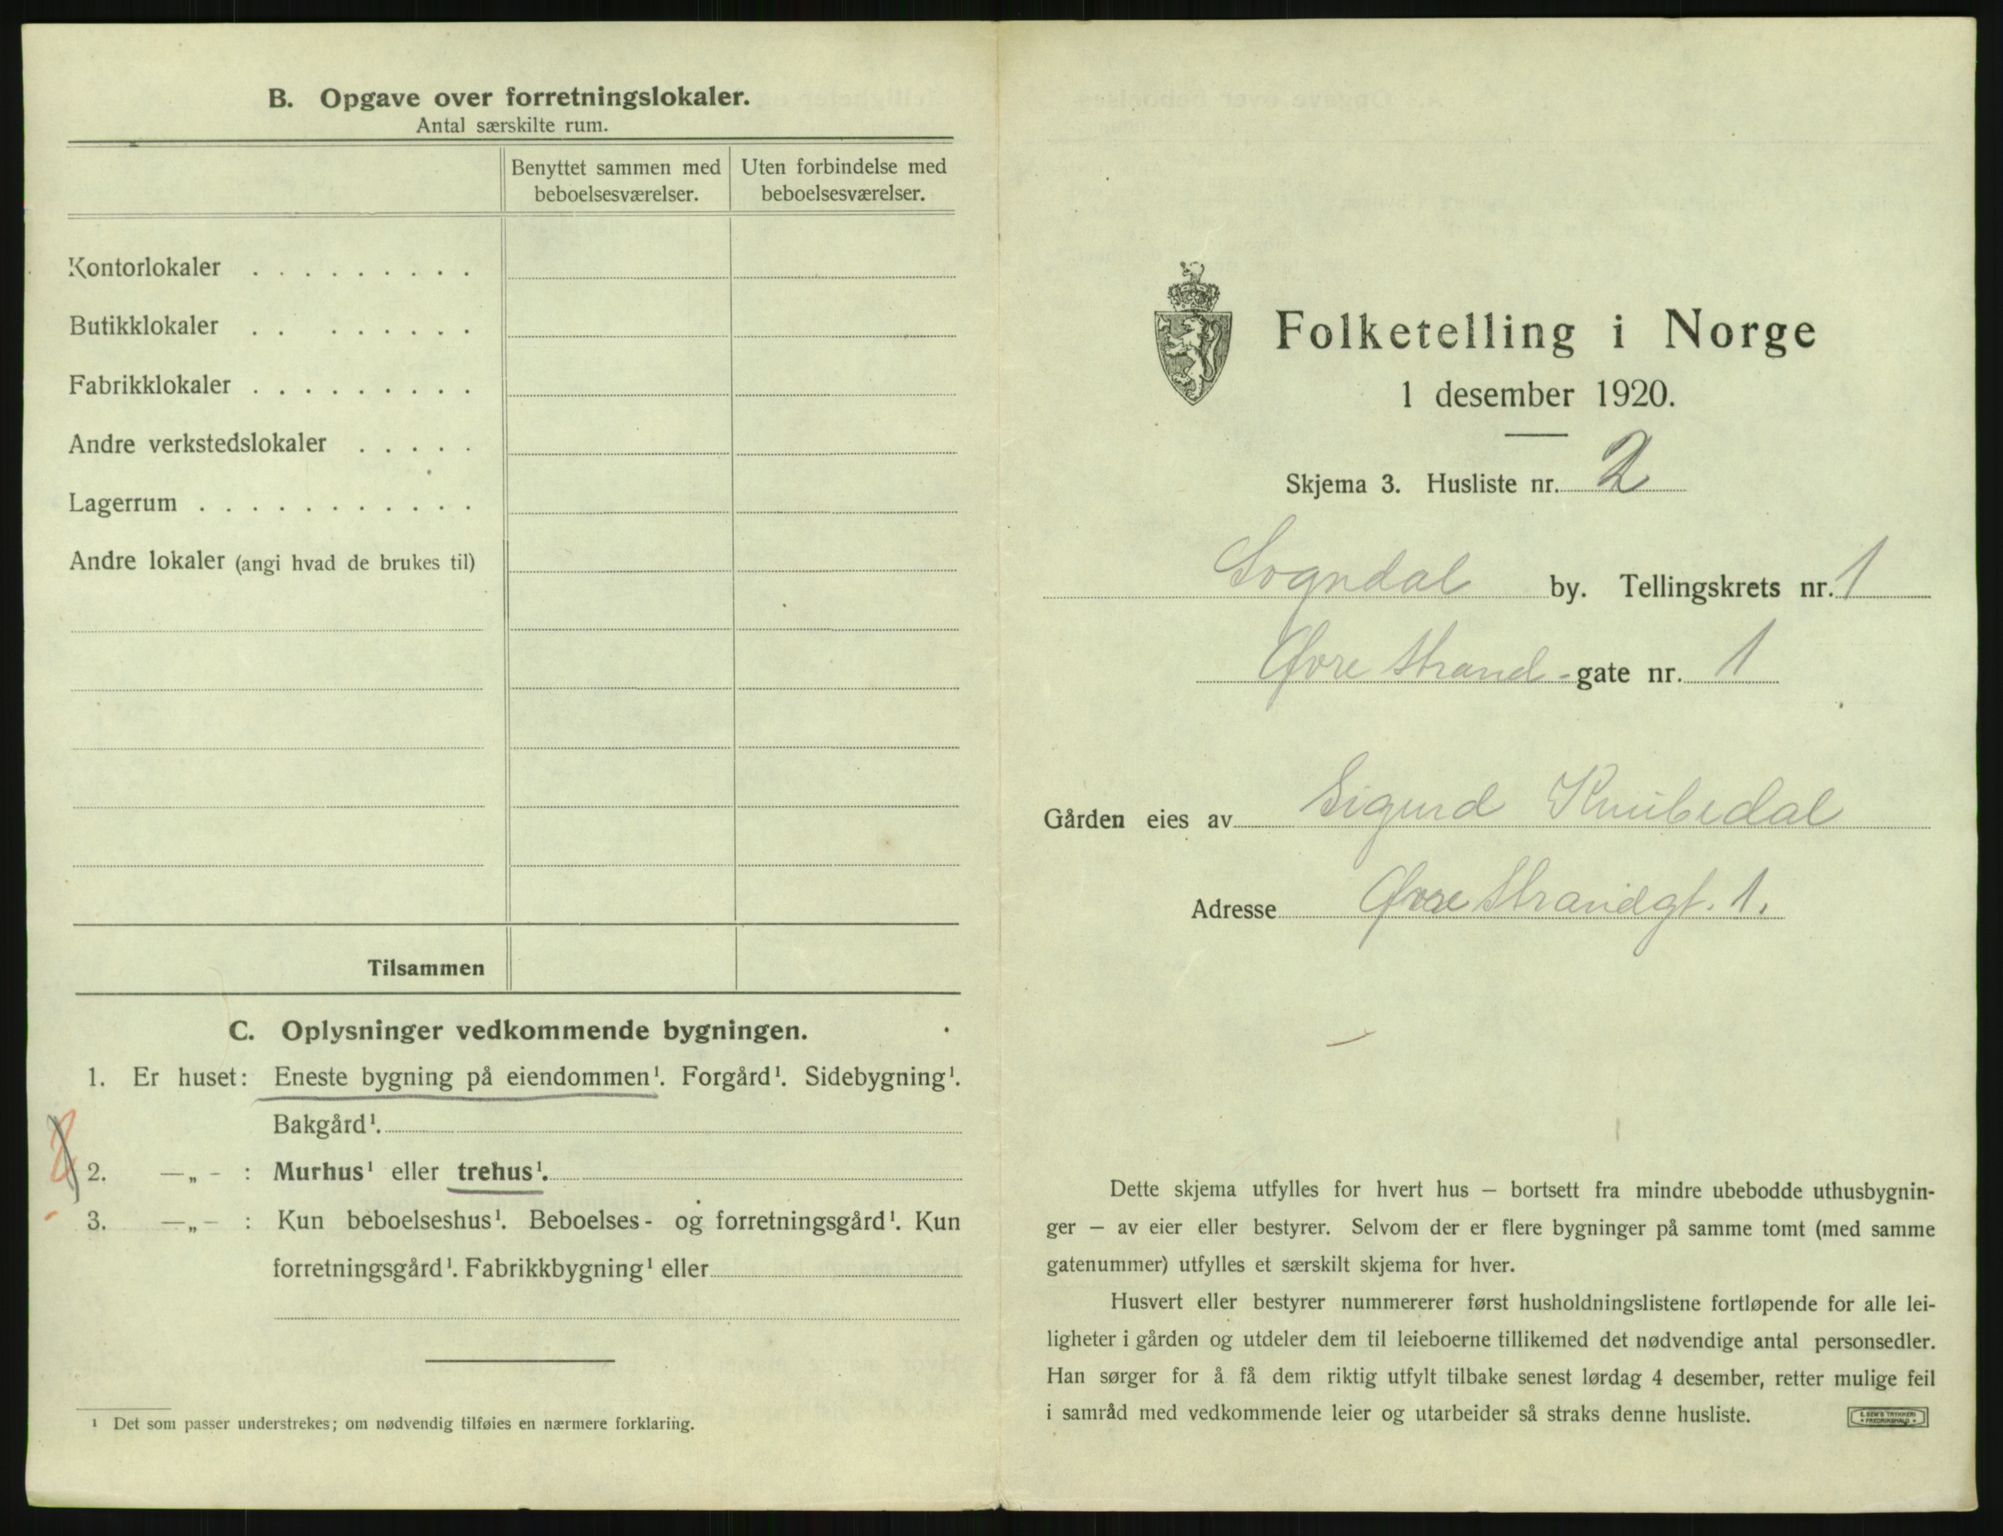 B. Opgave over forretningslokaler.
Antal særskilte rum.
Benyttet sammen med beboelsesværelser.
Uten forbindelse med beboelsesværelser.
Kontorlokaler . . . . . . . . .
Butikklokaler . . . . . . . .
Fabrikklokaler . . . . . . . . .
Andre verkstedslokaler . . . . .
Lagerrum . . . . . . . . . . .
Andre lokaler (angi hvad de brukes til)
Tilsammen
C. Oplysninger vedkommende bygningen.
1. Er huset: Eneste bygning på eiendommen¹. Forgård¹. Sidebygning¹.
Bakgård¹.
2. —„- : Murhus¹ eller trehus¹.
3. —„- : Kun beboelseshus¹. Beboelses- og forretningsgård¹. Kun
forretningsgård¹. Fabrikkbygning¹ eller
¹ Det som passer understrekes; om nødvendig tilføies en nærmere forklaring.
Folketelling i Norge
1 desember 1920.
Skjema 3. Husliste nr. 2
Sogndal by. Tellingskrets nr. 1
Øvre Strand-gate nr. 1
Gården eies av Sigurd Knubedal
Adresse Øvre Strandgt. 1.
Dette skjema utfylles for hvert hus — bortsett fra mindre ubebodde uthusbygnin-
ger — av eier eller bestyrer. Selvom der er flere bygninger på samme tomt (med samme
gatenummer) utfylles et særskilt skjema for hver.
Husvert eller bestyrer nummererer først husholdningslistene fortløpende for alle lei-
ligheter i gården og utdeler dem til leieboerne tillikemed det nødvendige antal personsedler.
Han sørger for å få dem riktig utfylt tilbake senest lørdag 4 desember, retter mulige feil
i samråd med vedkommende leier og utarbeider så straks denne husliste.
E. SEM'S TRYKKERI
FREDRIKSHALD